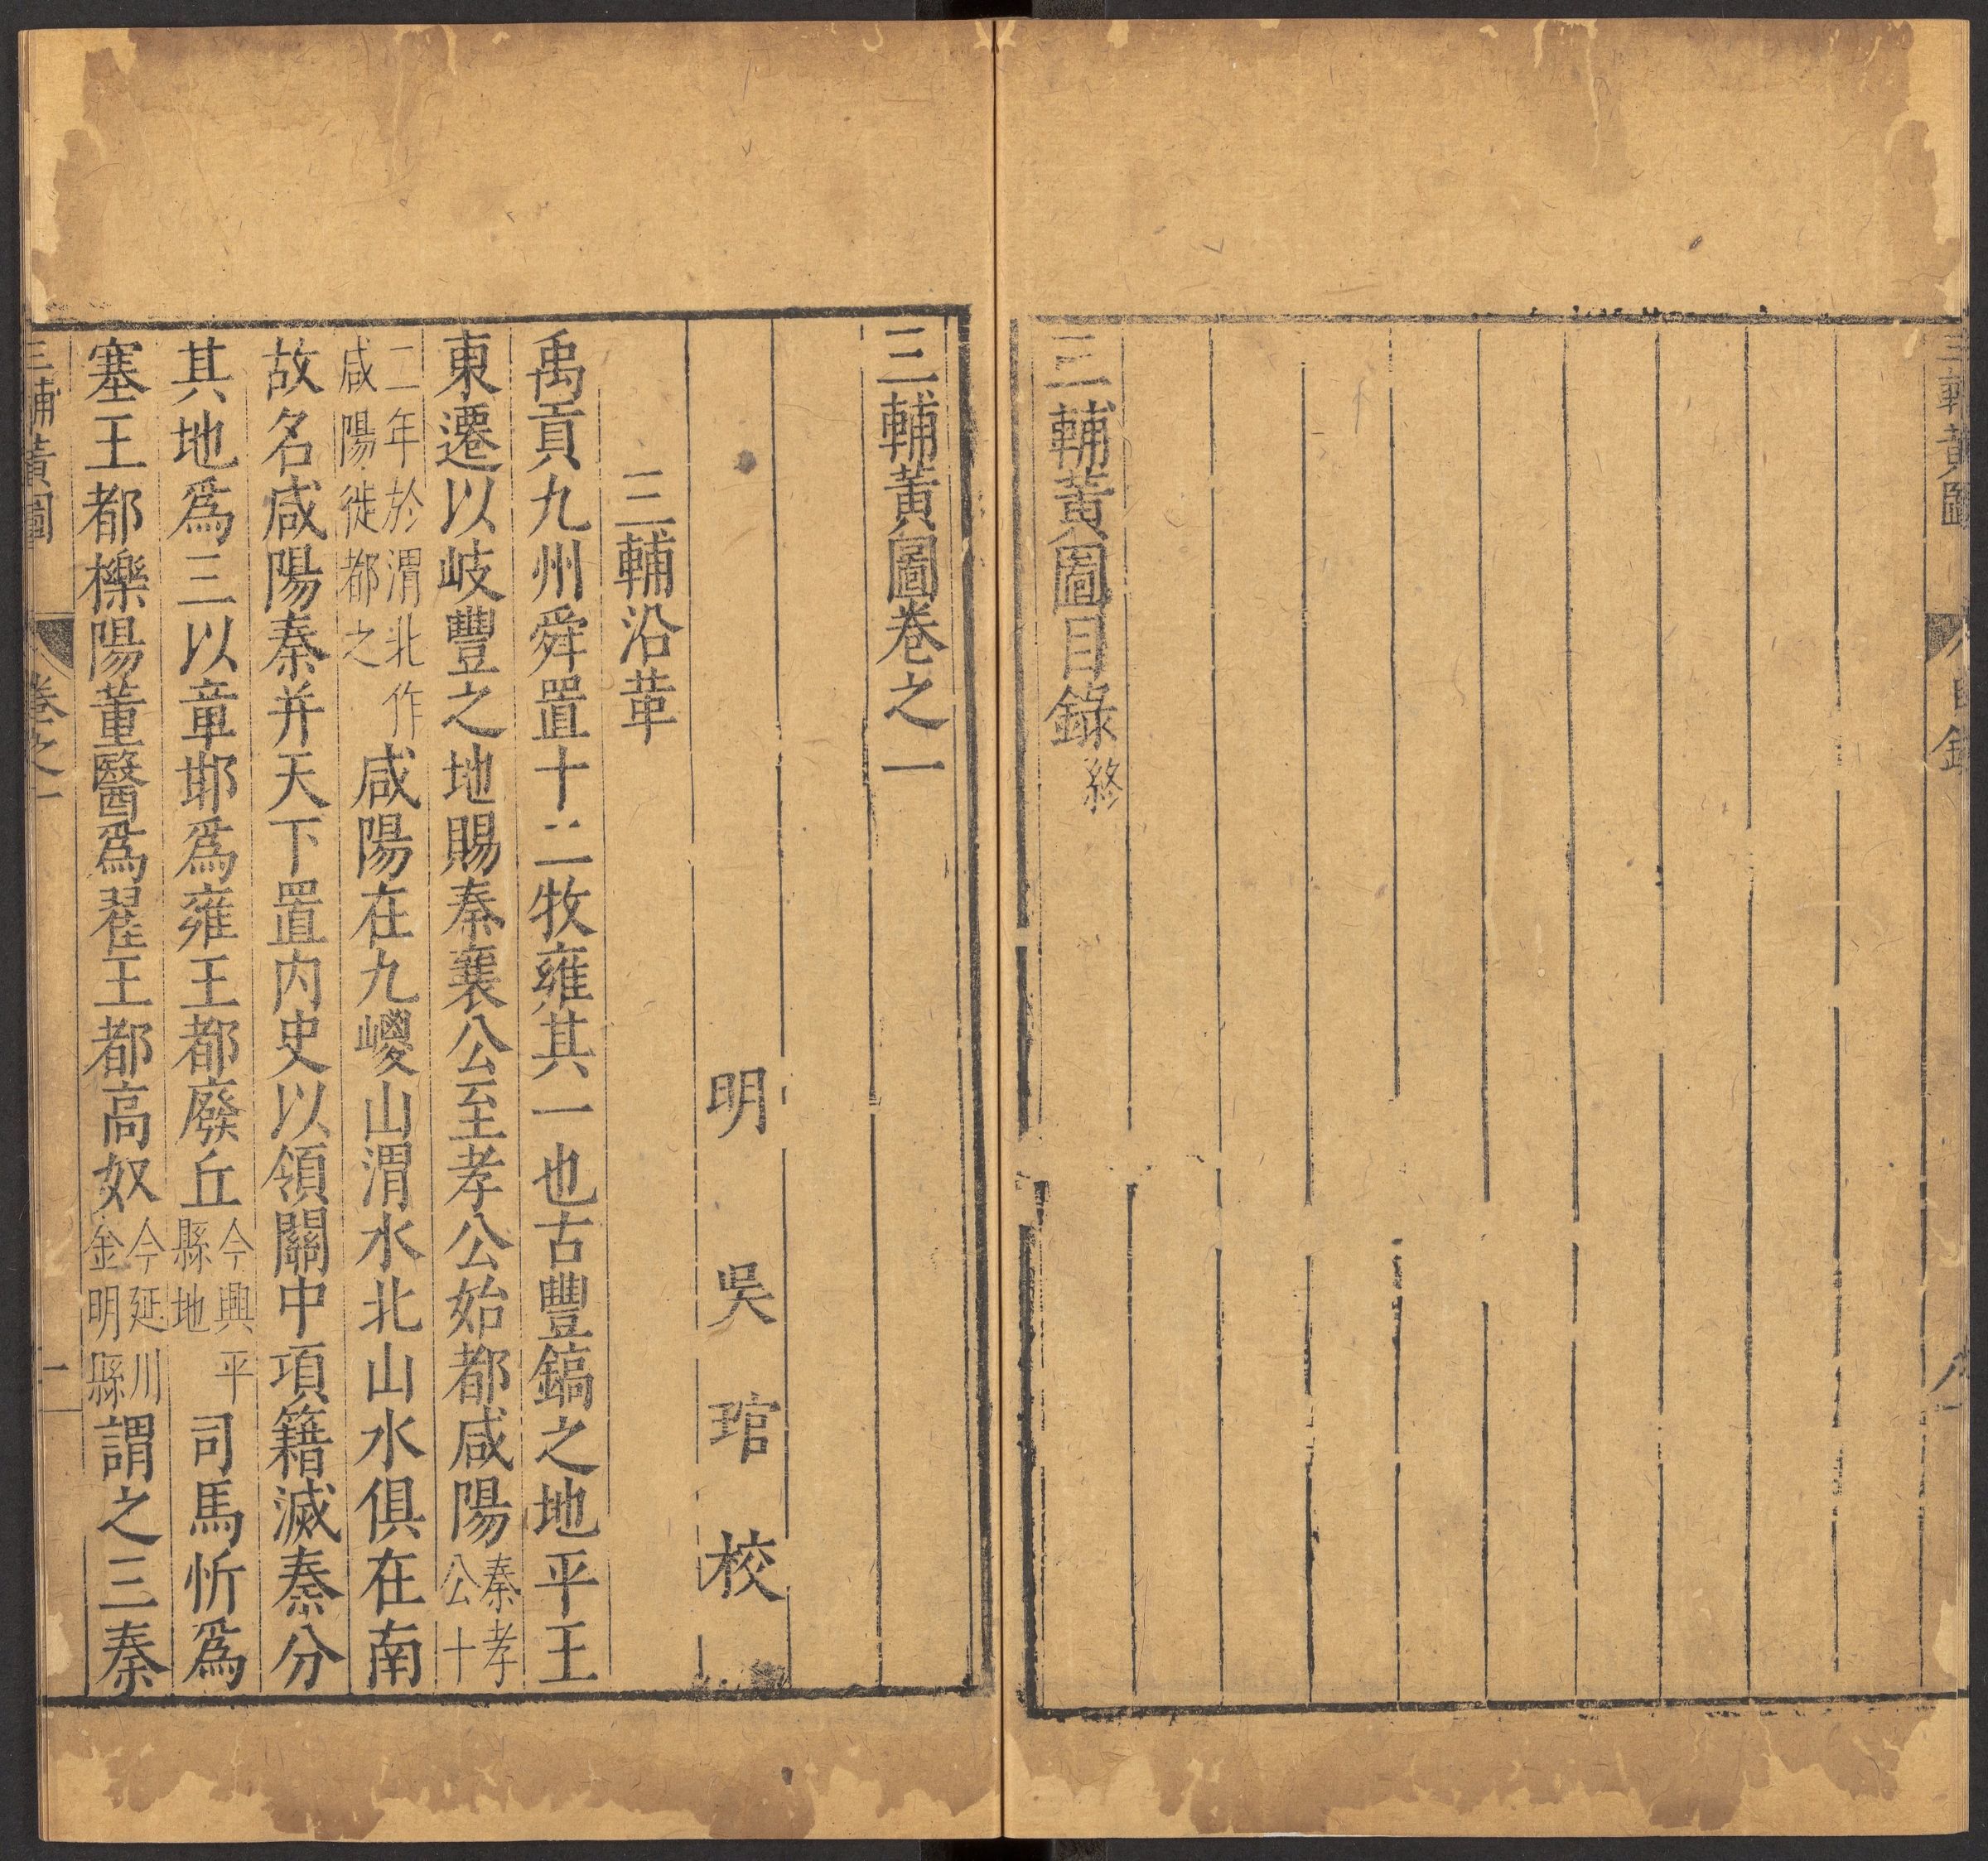 三輔黃圖
目錄
三輔黃圖目錄終
三輔黃圖卷之一
明吳琯校
三輔沿革
禹貢九州舜置十二牧雍其一也古豐鎬之地平王
東遷以岐豐之地賜秦襄公至孝公始都咸陽秦孝公十
二年於渭北作咸陽徙都之咸陽在九嵕山渭水北山水俱在南
故名咸陽秦并天下置內史以領關中項籍滅秦分
其地爲三以章邯爲雍王都廢丘今興平縣地司馬忻爲
塞王都櫟陽董醫爲翟王都高奴今延川金明縣謂之三秦
三輔黃圖
卷之一
一